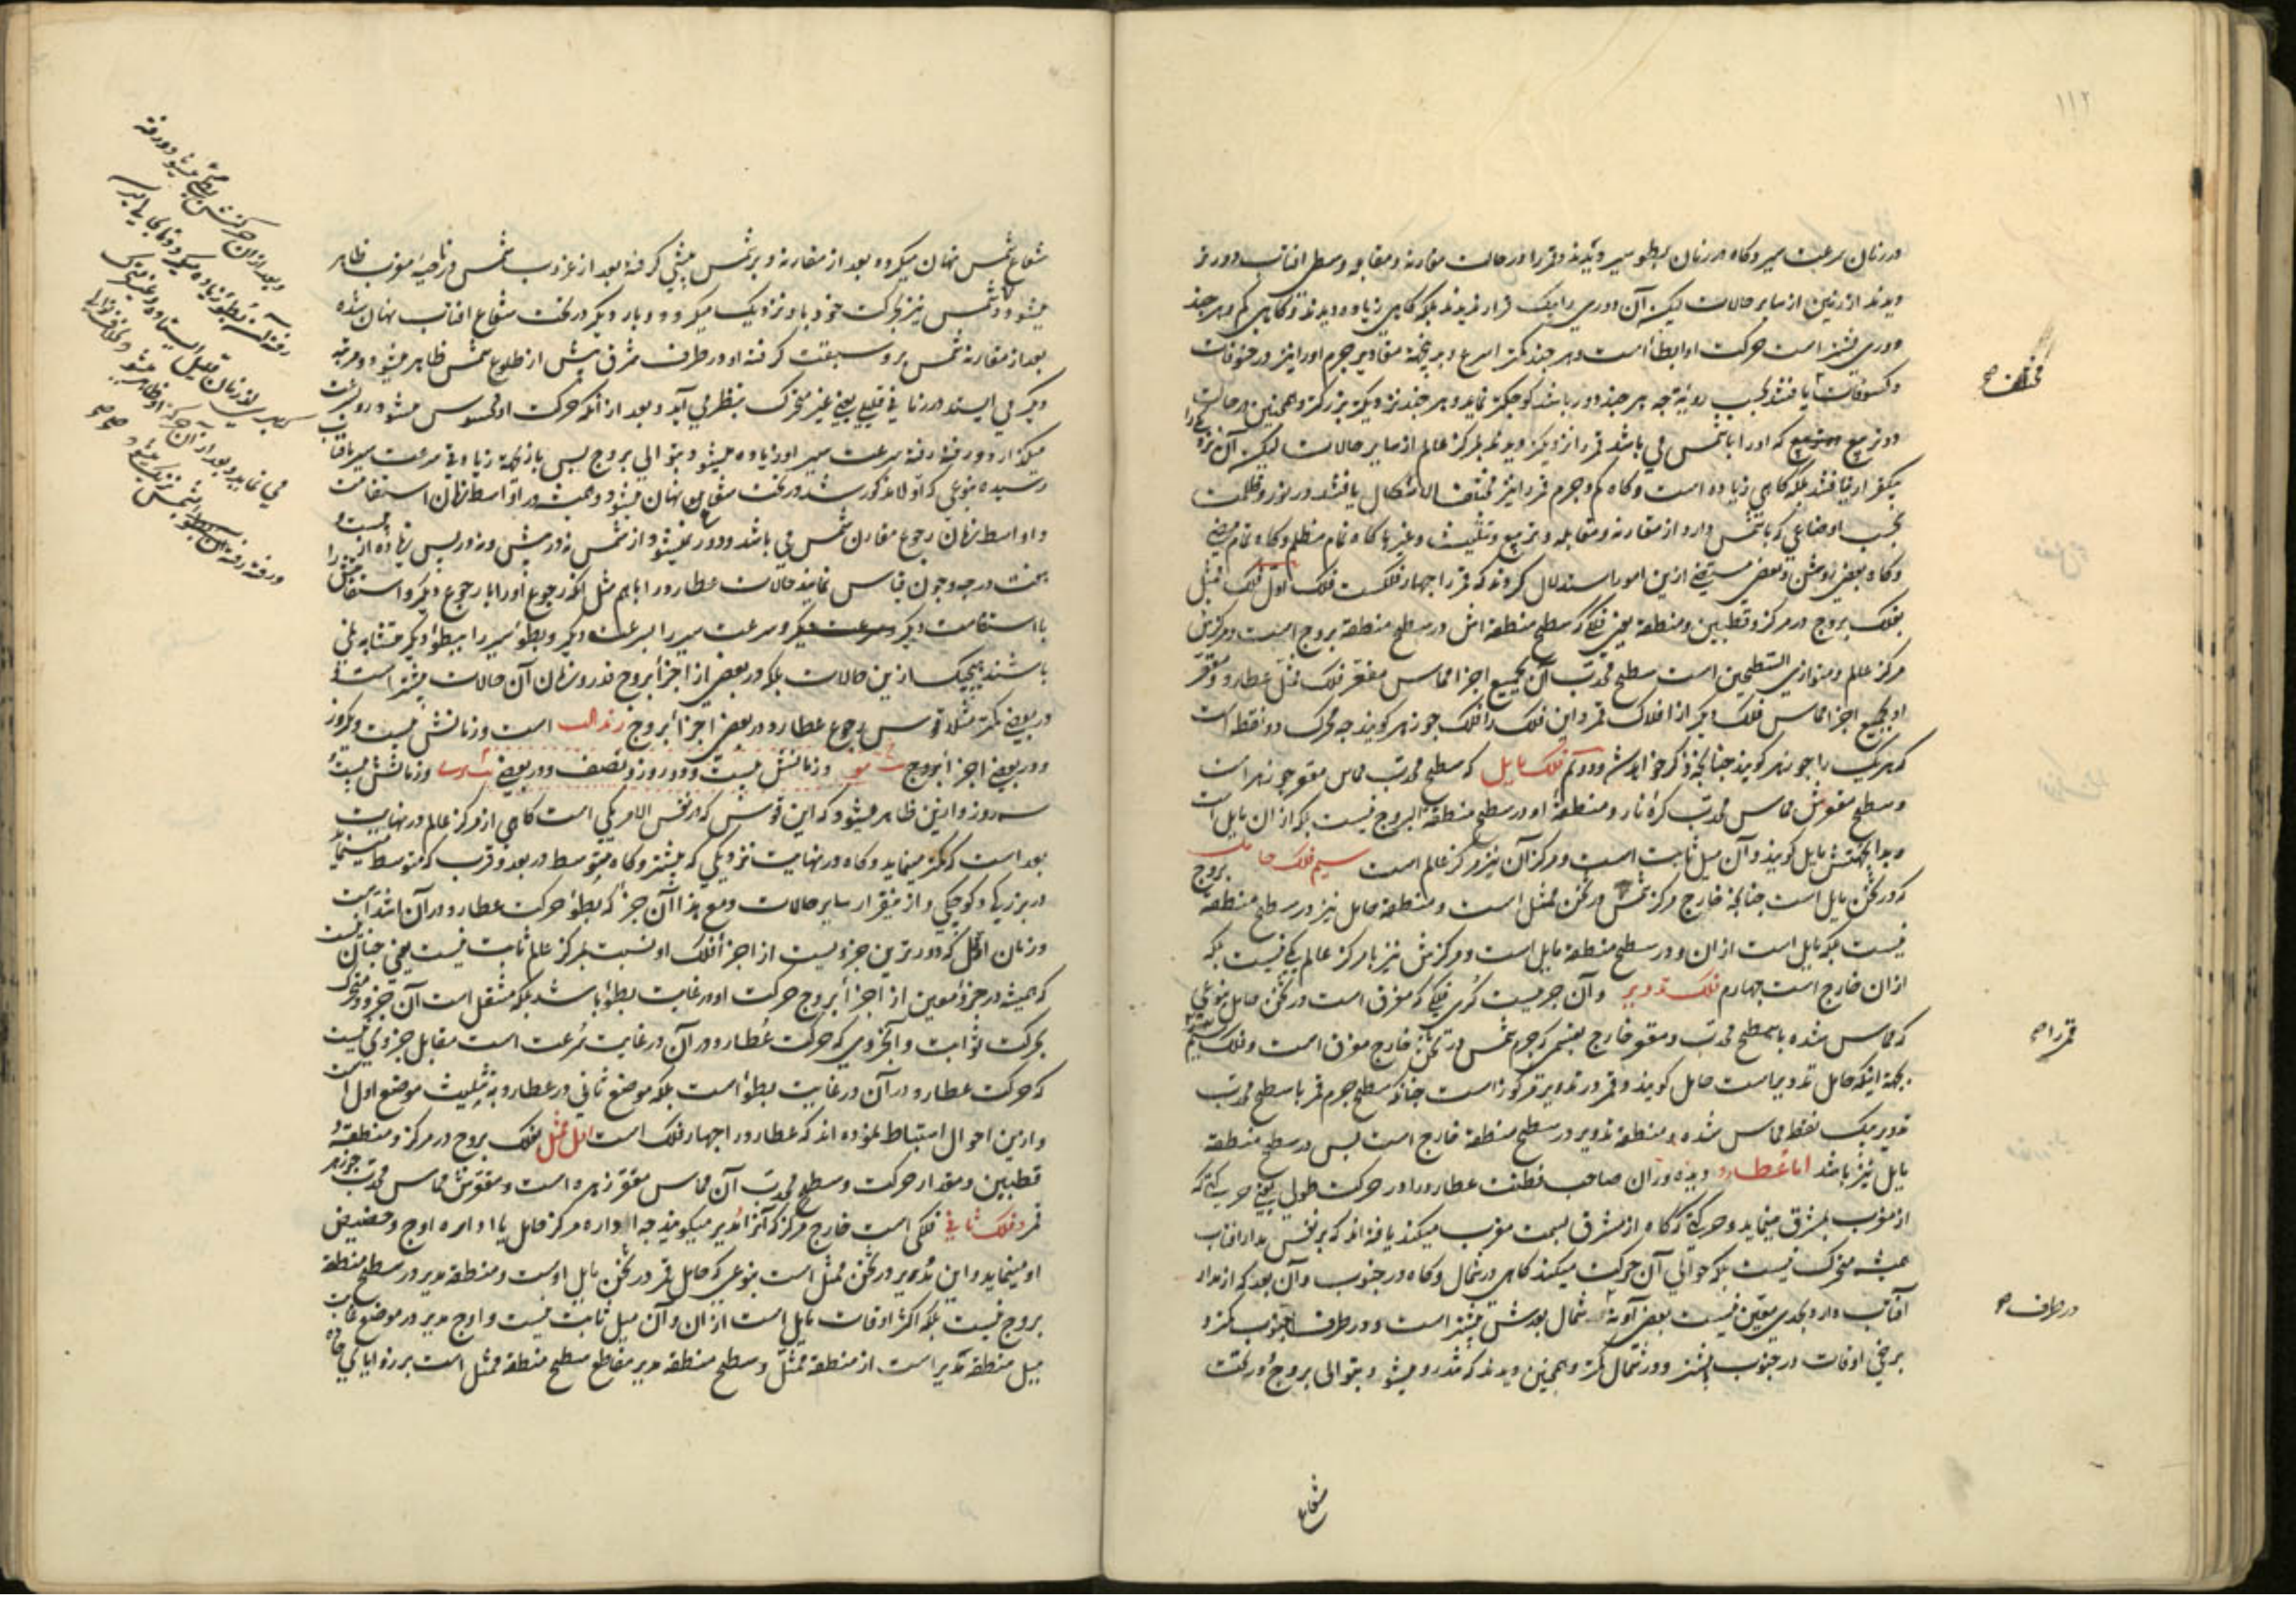 ١١٢
در زمان سرعت سیر و گاه در زمان بطو سیر و دیدند قمر را در حالت مقارنه و مقابله وسطی افتاب دورتر
دیدند از زمین از سایر حالات لیکن آن دوری را یک قرار ندیدند بلکه گاهی زیاده دیدند و گاهی کم و هر چند
دوری بیشتر است حرکت او ابطأ است و هر چند کمتر اسرع و مقادیر جرم او را نیز در خسوفات
مختلف صح
و کسوفات یافتند بحسب رویة چه هر چند دور باشد کوچکتر نماید و هر چند نزدیکتر بزرگتر و همچنین در حالت
دو تربیع که او را با شمس می باشد قمر را نزدیکتر دیدند بمرکز عالم از سایر حالات لیکن آن نزدیکی را
بیکقرار نیافتند بلکه گاهی زیاده است و گاه کم و جرم قمر را نیز مختلف الاشکال یافتند در نور و ظلمت
بحسب اوضاعی که با شمس دارد از مقارنه و مقابله و تربیع و تثلیث و غیرها گاه تمام مظلم و گاه تمام مضی
و گاه بعضی روشن و بعضی ازین امور استدلال کردند که قمر را چهار فلکست فلک اول فلک ممثل
بفلک بروج در مرکز و قطبین و منطقه یعنی فلکی که سطح منطقه اش در سطح منطقه بروج است و مرکزش
مرکز عالم و متوازی السطحین است سطح محدب آن بجمیع اجزا مماس مقعر فلک ممثل عطارد و مقعر
او بجمیع اجزا مماس فلک دیگر از افلاک قمر و این فلک را فلک جوزهر گویند چه محرک دو نقطه است
که هر یک را جوزهر گویند چنانچه ذکر خواهد شد و دوم فلک مایل که سطح محدب مماس مقعر جوزهر است
و سطح مقعرش مماس محدب کره نار و منطقه او در سطح منطقة البروج نیست بلکه از ان مایل است
و بدا بجهتش مایل گویند و آن میل ثابت است و مرکز آن نیز مرکز عالم است سیم فلک حامل
که در ثخن مایل است چنانچه خارج مرکز شمس در ثخن ممثل است و منطقه حامل نیز در سطح منطقه بروج
نیست بلکه مایل است از ان و در سطح منطقه مایل است و مرکزش نیز با مرکز عالم یکی نیست بلکه
از ان خارج است چهارم فلک تدویر و آن جرمیست کری فلکی که مغرق است در ثخن حامل بنوعی
که مماس شده با سطح محدب و مقعر خارج بقسمی که جرم شمس در ثخن خارج مغرق است و فلک سیم را
قمر را صح
بجهة اینکه حامل تدویر است حامل گویند و قمر در تدویر مرکوز است چنانکه سطح جرم قمر با سطح محدب
تدویر بیک نقطه مماس شده و منطقه تدویر در سطح منطقه خارج است پس در سطح منطقه
مایل نیز باشد اما عطارد دیده وران صاحب فطنت عطارد را در حرکت طولی یعنی حرکتی که
از مغرب بمشرق مینماید و حرکتی که گاه از مشرق بسمت مغرب میکند یافته اند که بر نفس مدار افتاب
همیشه متحرک نیست بلکه حوالی آن حرکت میکند گاهی در شمال و گاه در جنوب و آن بعد که از مدار
آفتاب دارد بحدی معین نیست بعضی آونه شمال بودش بیشتر است و در طرف جنوب کمتر و
در طرف صح
برخی اوقات در جنوب بیشتر و در شمال کمتر و همچنین دیدند که تندرو میشود بتوالی بروج و در تحت
شعاع
شعاع شمس نهان میگردد بعد از مقارنه و بر شمس پیشی گرفته بعد از غروب شمس در ناحیه مغرب ظاهر
میشود و شمس نیز بحرکت خود باو نزدیک میگردد و بار دیگر در تحت شعاع افتاب نهان شده
بعد از مقارنه شمس برو سبقت گرفته او در طرف مشرق پیش از طلوع شمس ظاهر میشود و مرتبه
دیگر می ایستد در زمانی قلیل یعنی غیر متحرک بنظر می آید و بعد از آنکه حرکت او محسوس میشود رو بسرعت
میگذارد و رفته رفته سرعت سیر او زیاده میشود بتوالی بروج پس باز بجهة زیادتی سرعت سیر بافتاب
رسیده بنوعی که اولا مذکور شد در تحت شعاع نهان میشود و همیشه در اواسط زمان استقامت
و اواسط زمان رجوع مقارن شمس می باشد و دور نمیشود از شمس نه در پیش و نه در پس زیاده از بیست و
هفت درجه و چون قیاس نمایند حالات عطارد را باهم مثل آنکه رجوع او را با رجوع دیگر و استقامتش را
با استقامت دیگر و سرعت سیر را بسرعت دیگر و بطو سیر را ببطو دیگر متشابه نمی
باشند هیچیک ازین حالات بلکه در بعضی از اجزا بروج قدر و زمان آن حالات بیشتر است و
در بعضی کمتر مثلا قوس رجوع عطارد در بعضی اجزا بروج است و زمانش بیست و یکروز
و در بعضی اجزا بروج و زمانش بیست و دو روز و نصف و در بعضی و زمانش بیست و
سه روز و ازین ظاهر میشود که این قوس که در نفس الامر یکی است گاهی از مرکز عالم در نهایت
بعد است که کمتر مینماید و گاه در نهایت نزدیکی که بیشتر و گاه متوسط در بعد و قرب که متوسط مینماید
در بزرگی و کوچکی و از سایر حالات و مع هذا آن جز که بطو حرکت عطارد در آن اشد است
در زمان اقل که دورترین جزویست از اجزا فلک او نسبت بمرکز عالم ثابت نیست یعنی چنان نیست
که همیشه در جزو معین از اجزا بروج حرکت او در غایت بطو باشد بلکه منتقل است آن جزو و متحرک
بحرکت ثوابت و آنجزوی که حرکت عطارد در آن در غایت سرعت است مقابل جزوی نیست
که حرکت عطارد در آن در غایت بطو است بلکه موضع ثانی در عطارد بتثلیث موضع اول است
و ازین احوال استنباط نموده اند که عطارد را چهار فلک است اول ممثل بفلک بروج در مرکز و منطقه و
قطبین و مقدار حرکت و سطح محدب آن مماس مقعر زهره است و مقعرش مماس محدب جوزهر
قمر و فلک ثانی فلکی است خارج مرکز که آنرا مدیر میگویند چه اداره مرکز حامل یا اداره اوج و حضیض
او مینماید و این مدیر در ثخن ممثل است بنوعی که حامل قمر در ثخن مایل اوست و منطقه مدیر در سطح منطقه
بروج نیست بلکه اکثر اوقات مایل است از ان و آن میل ثابت نیست و اوج مدیر در موضع غایت
میل منطقه مدیر است از منطقه ممثل و سطح منطقه مدیر مقاطع سطح منطقه ممثل است بر زوایای حاده
و بعد ازان حرکتش بطی میشود و رفته
رفته آن بطو زیاده میگردد تا بجایی که
در زمان قلیل ایستاده و غیر متحرک
می نماید و بعد از آن حرکت او ظاهر میشود
و رفته رفته بشمس نزدیک میشود صح